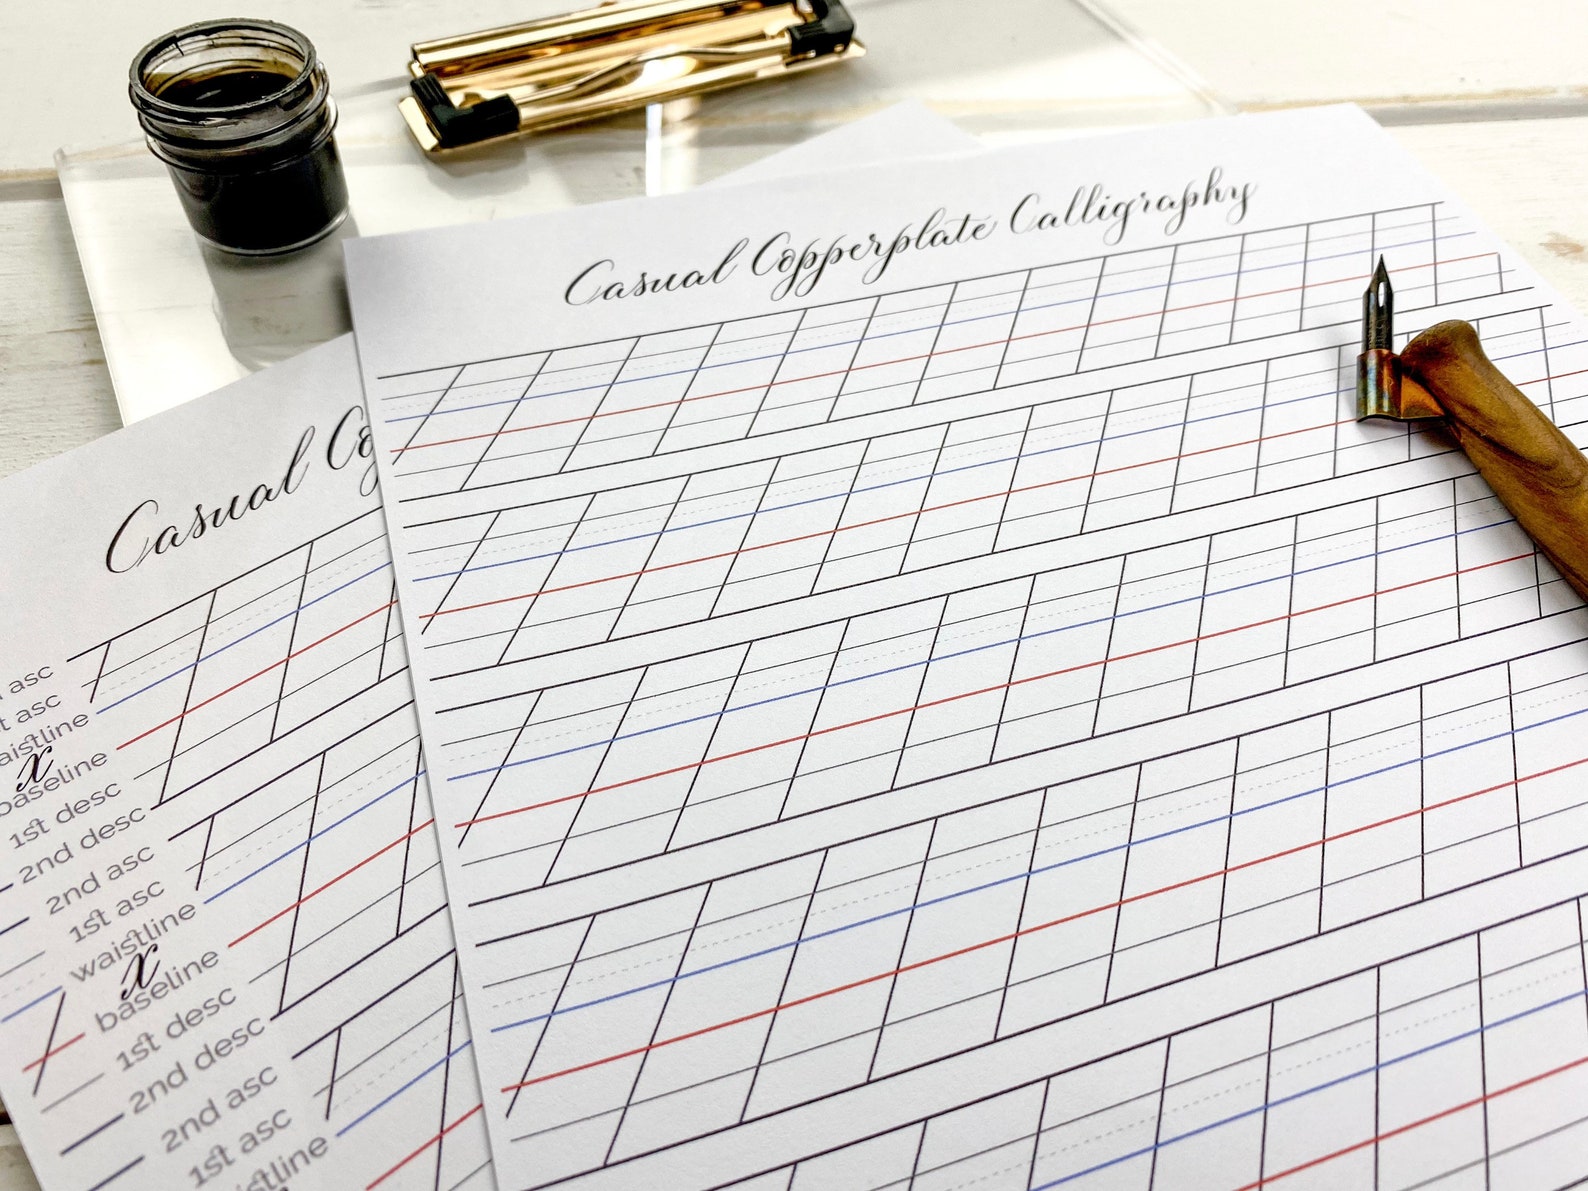 Casual Copperplate Calligraphy
Casual
asc
asc
x
baseline
1st desc
2nd desc
2nd asc
1st asc
waistline
x
baseline
1st desc
2nd desc
2nd asc
1st asc